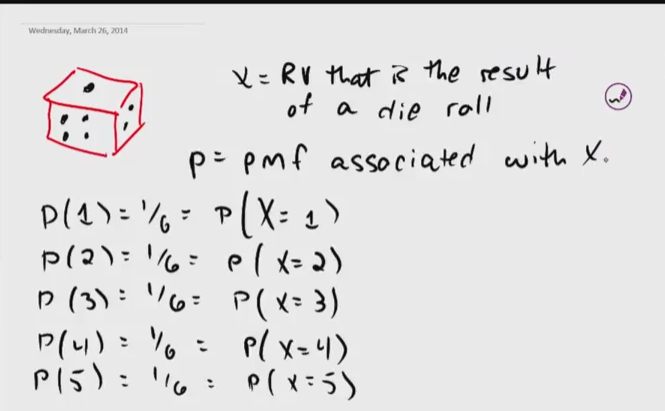 Wednesday, March 26, 2014
X = RV that is the result
of a die roll
p = pmf associated with X.
p(1) = 1/6 = P(X = 1)
p(2) = 1/6 = P(X = 2)
p(3) = 1/6 = P(X = 3)
p(4) = 1/6 = P(X = 4)
p(5) = 1/6 = P(X = 5)